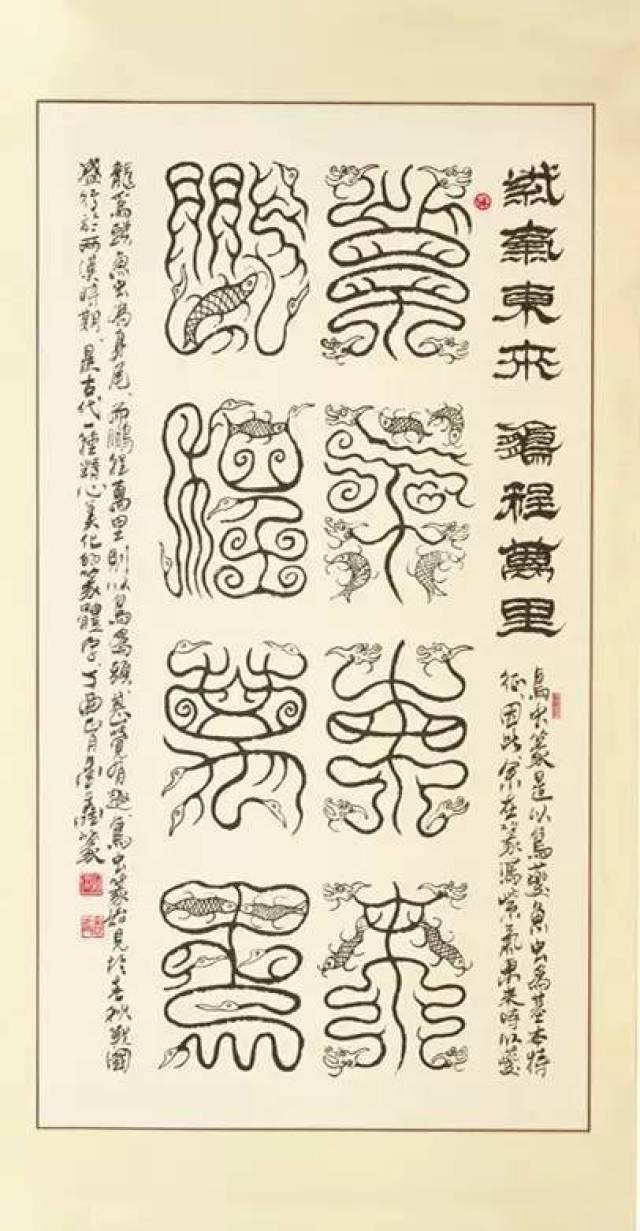 紫氣東來 鵬程萬里
鳥虫篆是以鳥夔魚虫為基本特
征、因此余在篆寫紫氣東來時以夔
紫氣東來
鵬程萬里
龍為頭魚虫為身尾、而鵬程萬里則以鳥為頭甚覺有趣鳥虫篆始見於春秋戰國
盛行於兩漢時期、是古代一種精心美化的篆體字丁酉正月篆